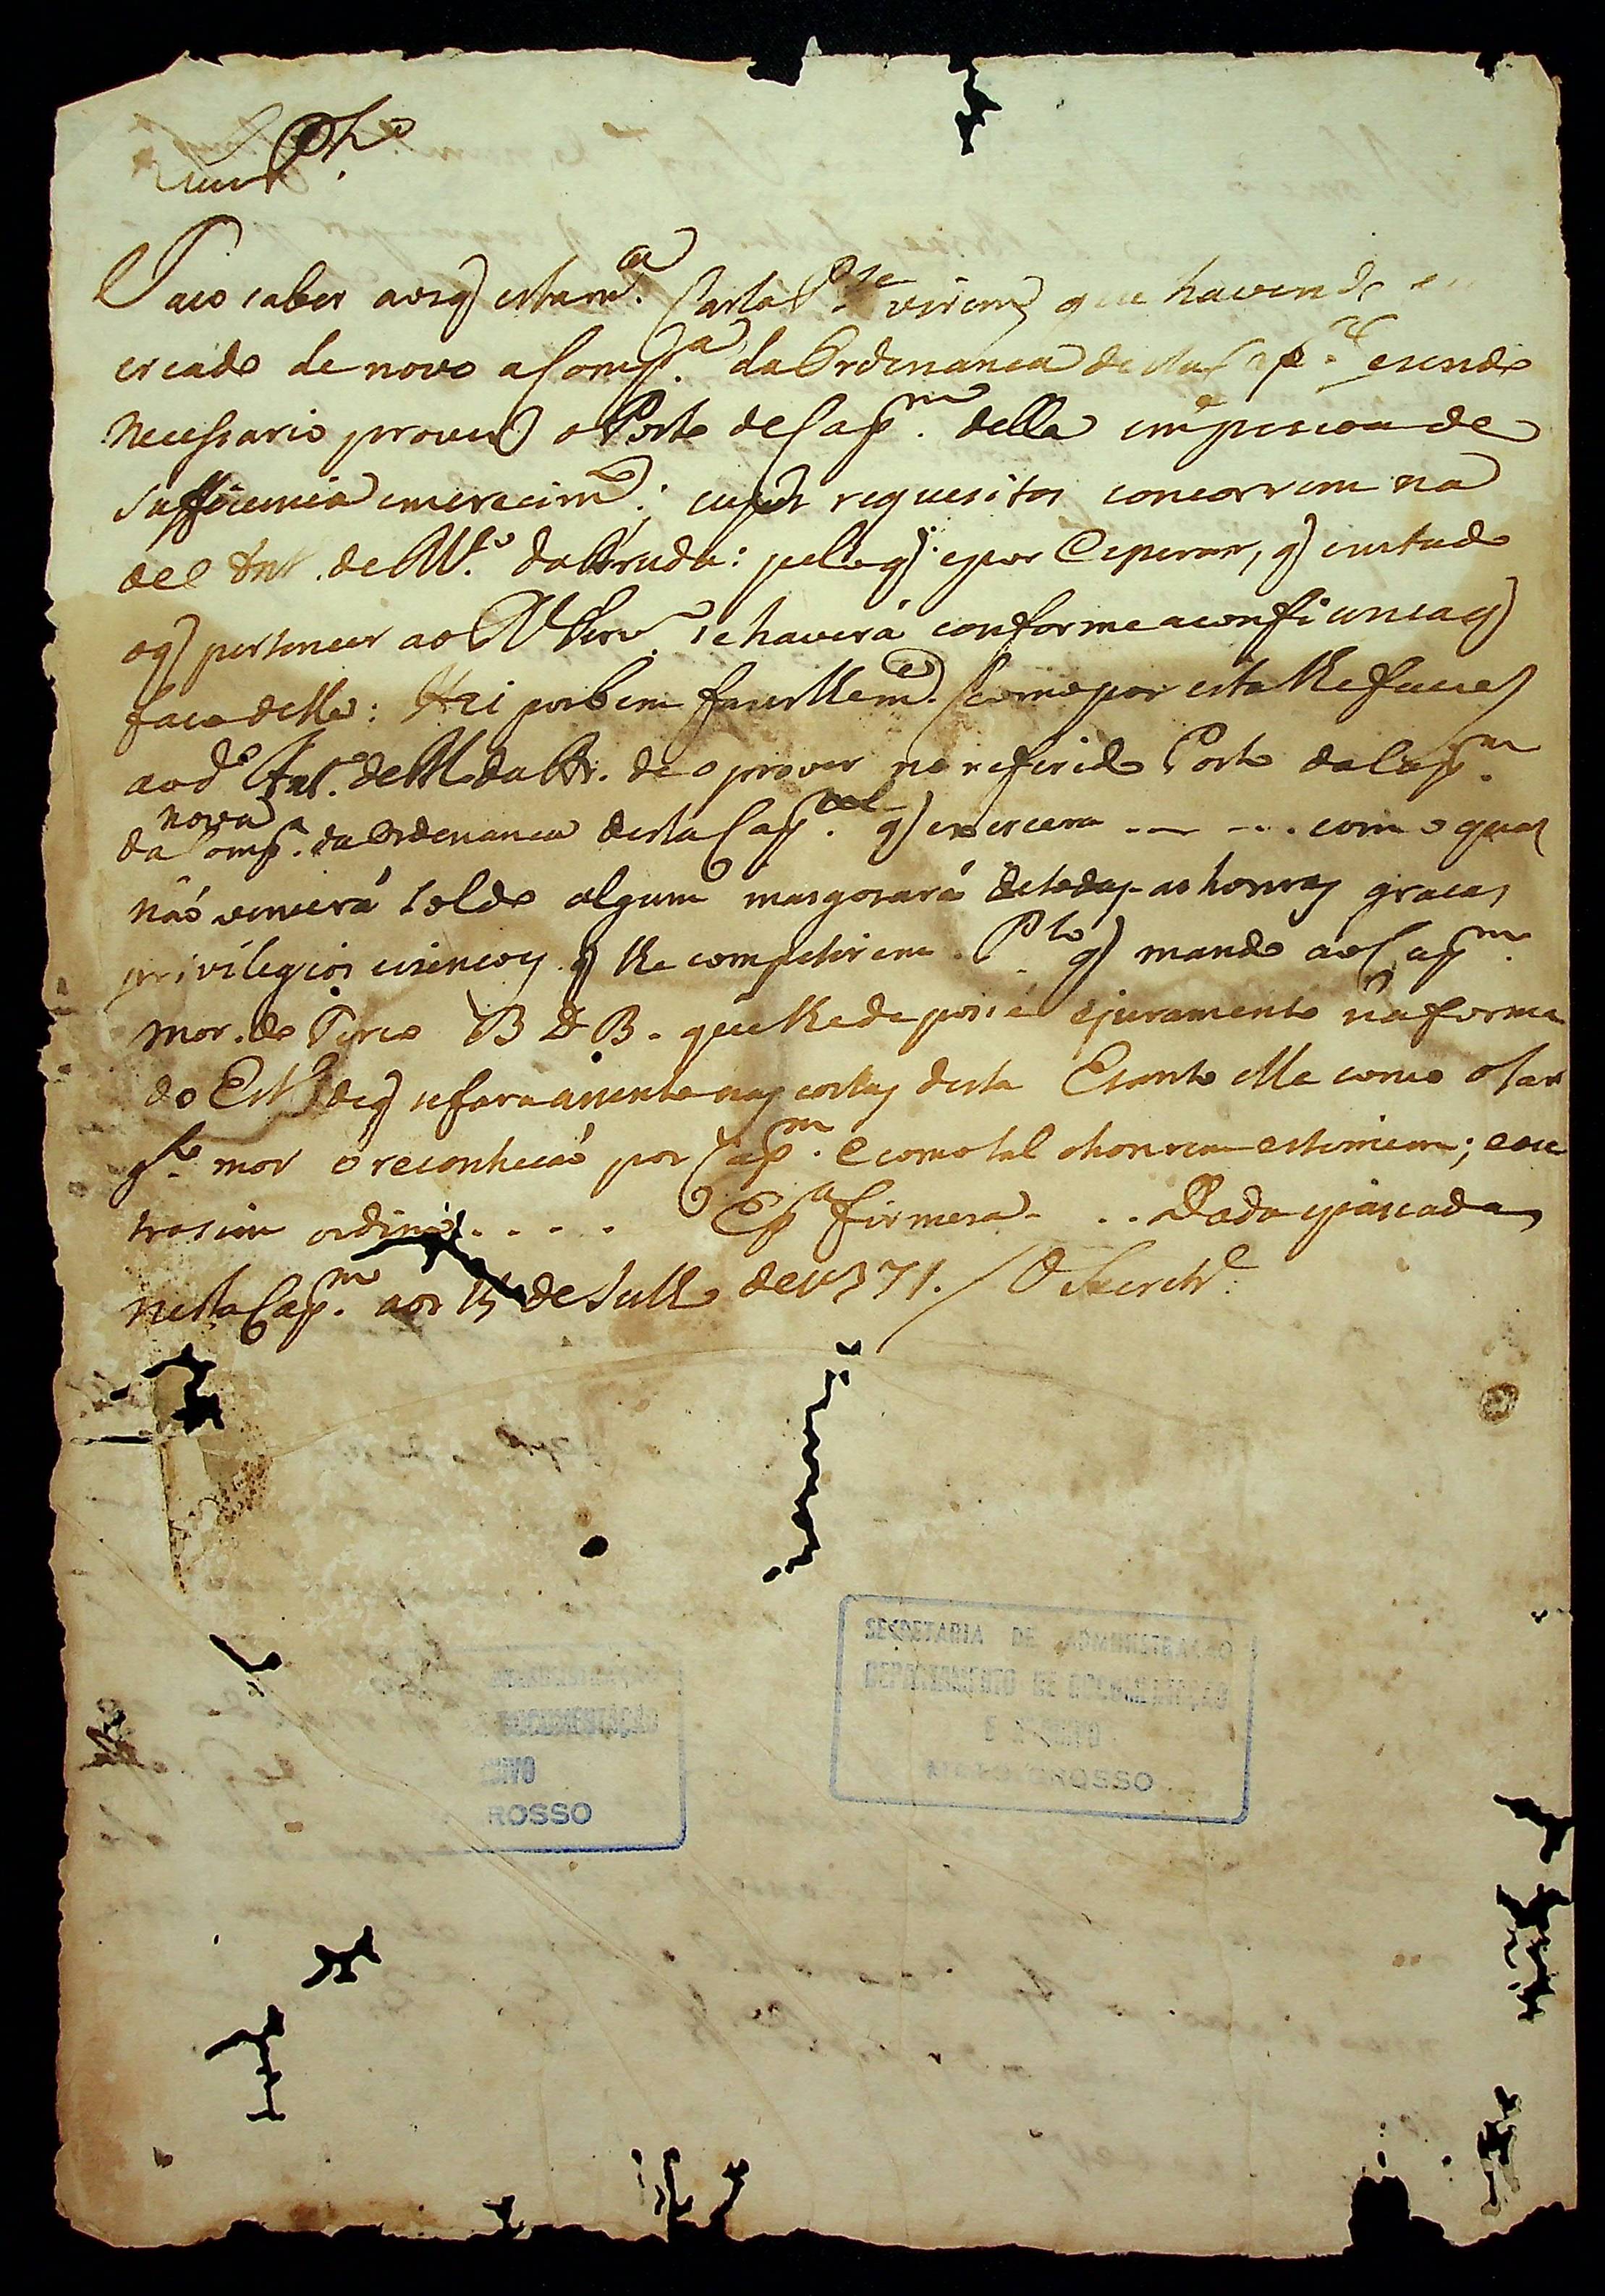 Luis Ph.e
Faço saber aos q̃ esta m.a Carta P.te virem que havendo eu
creado de novo a Comp.a da Ordenança desta Cap.al e sendo
necessario prover o Posto de Cap.m della em pescoa de
sufficiencia e merecim.to; cujos requesitos concorrem na
de Ant. de M.lo da Arruda: pelo q̃ e por Esperar, q̃ em tudo
o q̃ pertencer ao R. Serv.o se haverá conforme a confiança q̃
faço delle: Hei por bem fazerlhe m.e (como por esta lhe faço)
ao d.o Ant.o de M. da Ar. de o prover no referido Posto de Cap.m
nova
da Comp.a da Ordenança desta Cap.al q̃ exercera ... com o qual
não vencerá soldo algum mas gosará de todas as honras graças
privilegios e isençoes q̃ lhe competirem. P.lo q̃ mando ao Cap.m
mor do Terco B D B. que lhe de posse e juramento na forma
do Est.o de q̃ se fara assento nas costas desta E tanto elle como o Sar
g.to mor o reconheção por Cap.m e como tal o honrem e estimem; e ou
trosim ordino .... E p.a firmesa - .. Dada e passada
nesta Cap.m aos 15 de Julho de 1771. / O Secretr.o
SECRETARIA DE ADMINISTRAÇÃO
DEPARTAMENTO DE DOCUMENTAÇÃO
E ARQUIVO
MATO GROSSO
DOCUMENTAÇÃO
UIVO
ROSSO